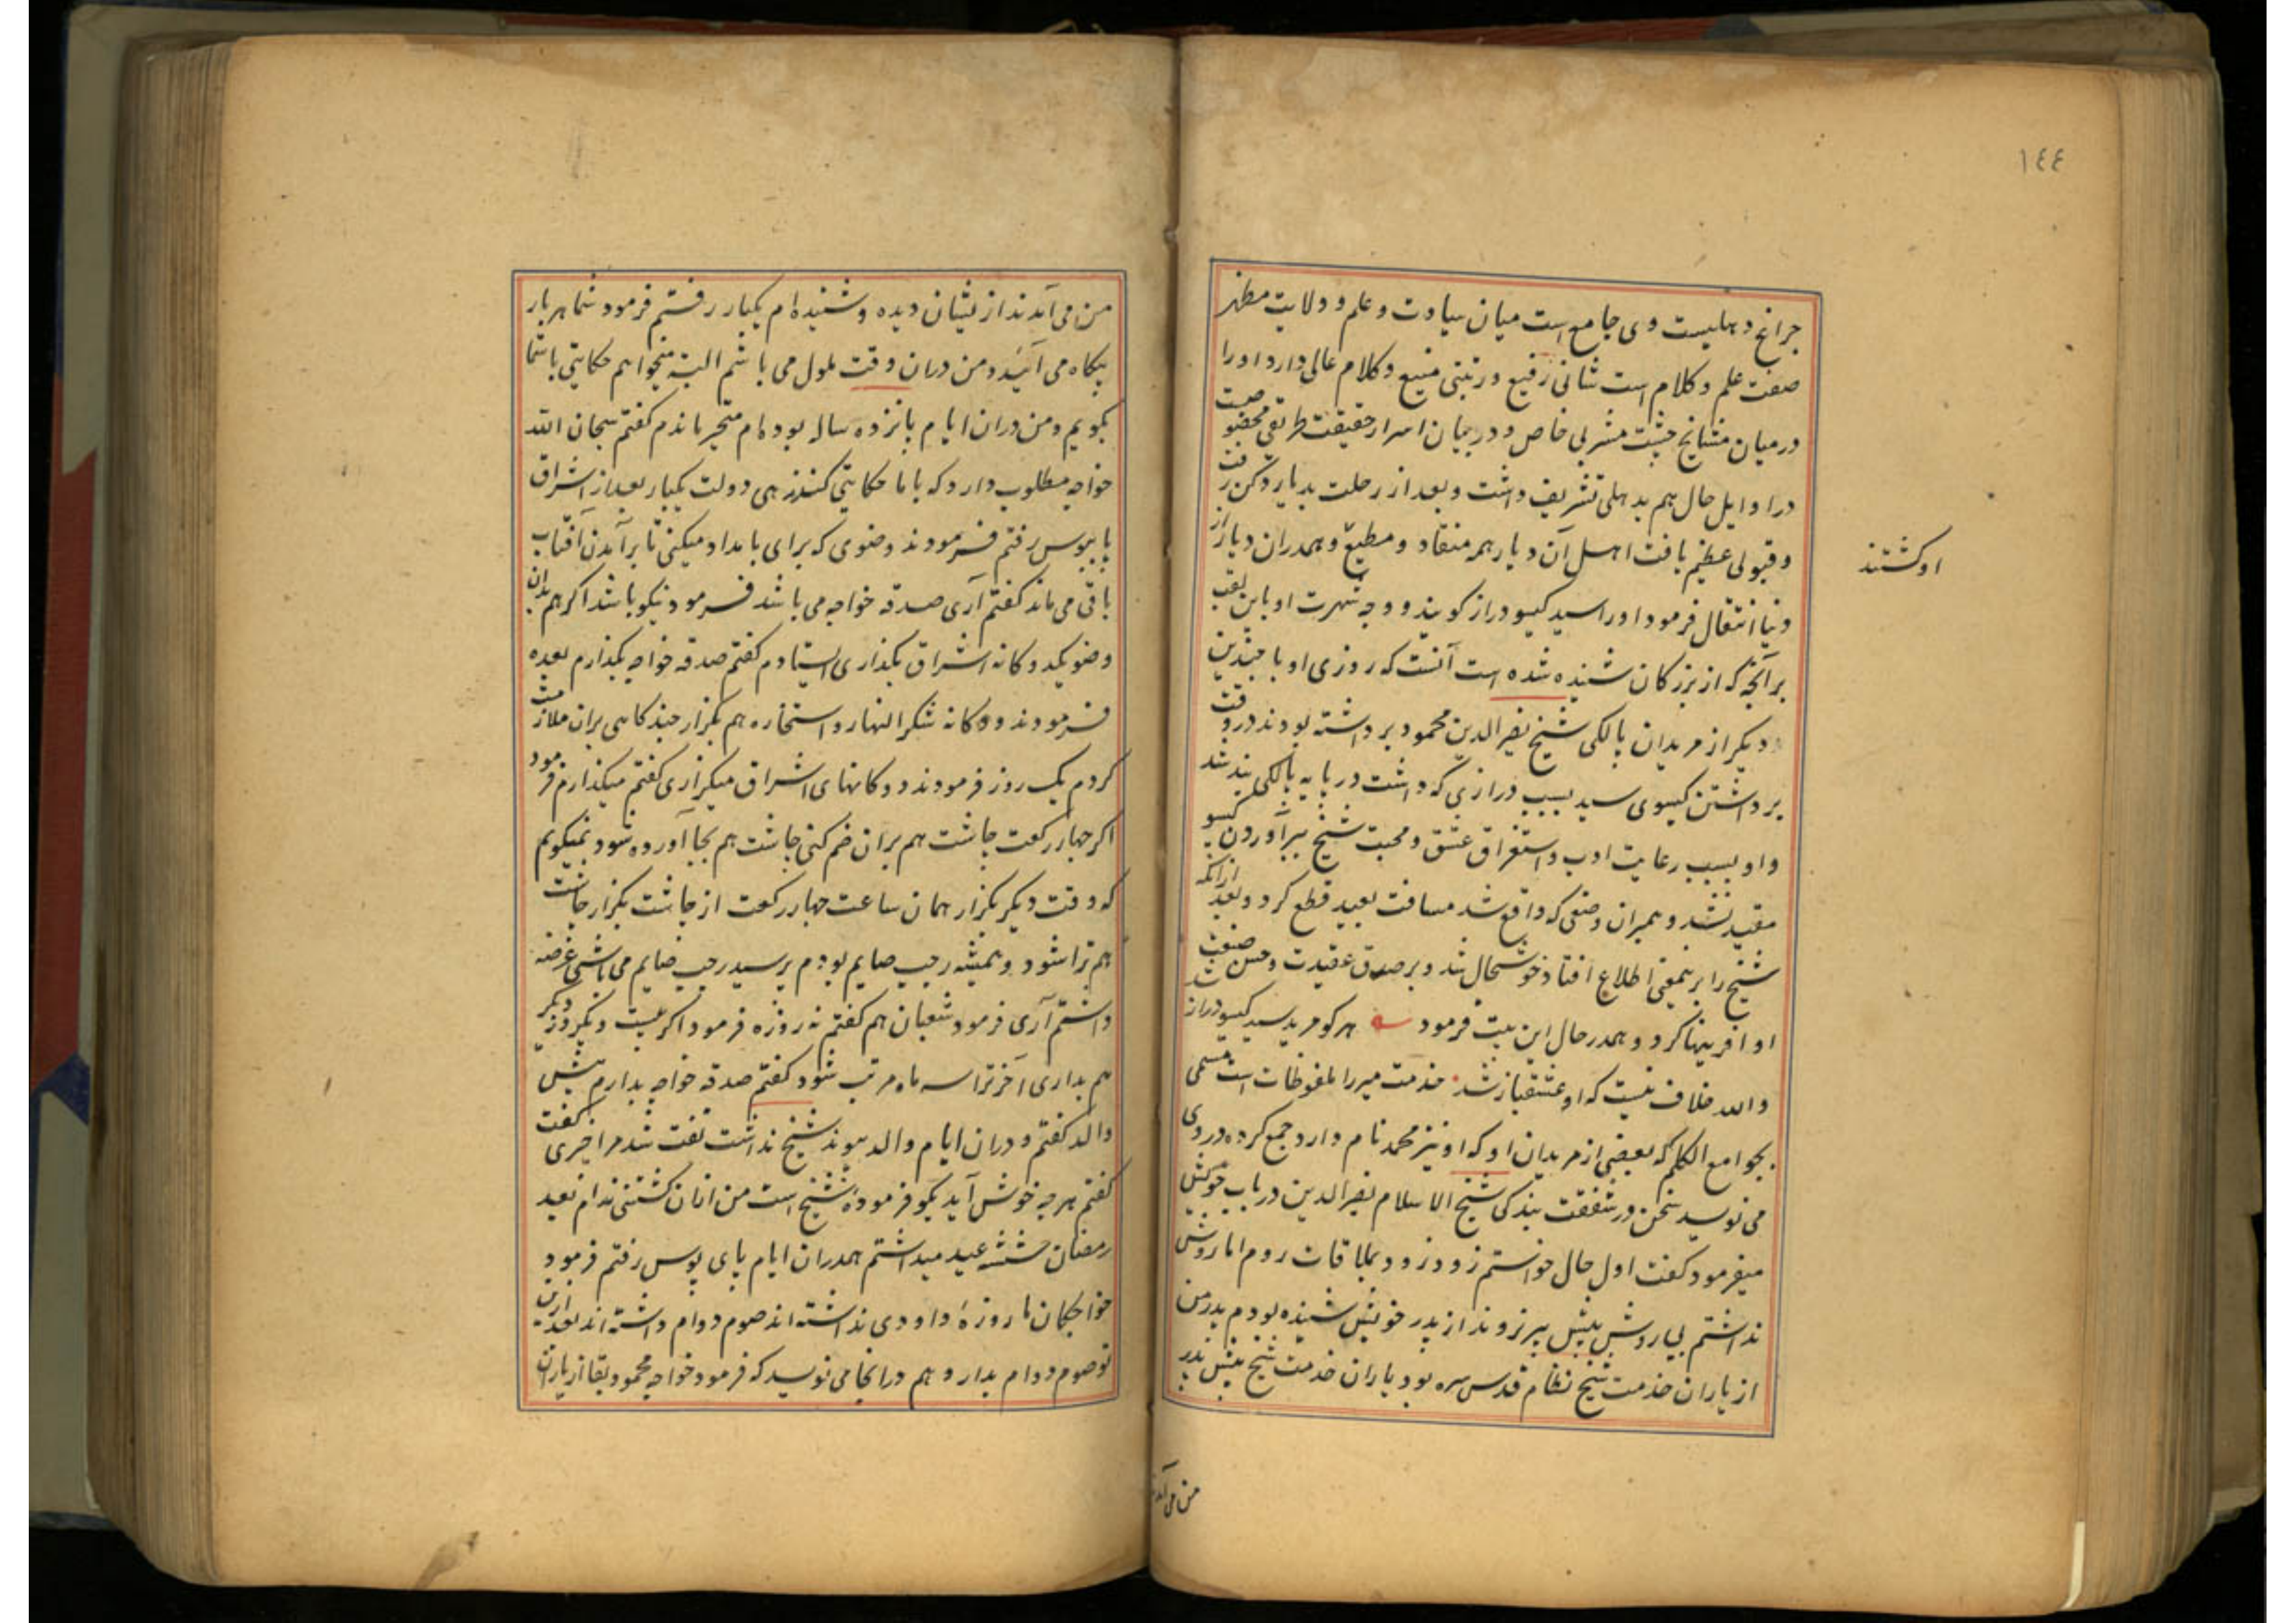 ١٤٤
چراغ دهلیست وی جامع است میان سیادت و علم و ولایت مظهر
صفت علم و کلام است شانی رفیع و رتبتی منیع و کلام عالی دارد او را
در میان مشایخ چشت مشربی خاص و در بیان اسرار حقیقت طریقی مخصوصست
در اوایل حال هم بدهلی تشریف داشت و بعد از رحلت بدیار دکن رفت
و قبولی عظیم یافت اهل آن دیار همه منقاد و مطیع و همدران دیار از
او گشتند
دنیا انتقال فرمود او را سید کیسودراز کویند و وجه شهرت او باین لقب
برآنچه که از بزرکان شنیده شده است آنست که روزی او با چندین
دیکر از مریدان پالکی شیخ نصیر الدین محمود برداشته بودند در وقت
برداشتن کیسوی سید بسبب درازی که داشت در پایه پالکی بند شد
و او بسبب رعایت ادب و استغراق عشق و محبت شیخ ببرآوردن کیسو
مقید نشد و همبران وضعی که واقع شد مسافت بعید قطع کرد و بعد ازانکه
شیخ را برینمعنی اطلاع افتاد خوشحال شد و بر صدق عقیدت و حسن صنعت
او آفرینها کرد و همدر حال این بیت فرمود هر کو مرید سید کیسودراز شد
والله خلاف نیست که او عشقباز شد خدمت میر را ملفوظات است مسمی
بجوامع الکلم که بعضی از مریدان او که او نیز محمد نام دارد جمع کرده در وی
می نویسد سخن در شفقت بندکی شیخ الاسلام نصیر الدین در باب خویش
میفرمود کفت اول حال خواستم زود زود بملاقات روم اما روش
نداشتم بی روش پیش پیر نروند از پدر خویش شنیده بودم پدر من
از یاران خدمت شیخ نظام قدس سره بود یاران خدمت شیخ پیش پدر
من می آمدند
من می آمدند از ایشان دیده و شنیده ام یکبار رفتم فرمود شما هر بار
بیکاه می آئید و من دران وقت ملول می باشم البته میخواهم حکایتی با شما
بکویم و من دران ایام پانزده ساله بوده ام متحیر ماندم کفتم سبحان الله
خواجه مطلوب دارد که با ما حکایتی کنند زهی دولت یکبار بعد از اشراق
پابوس رفتم فرمودند وضوی که برای بامداد میکنی تا برآمدن آفتاب
باقی می ماند کفتم آری صدقه خواجه می باشد فرمود نیکو باشد اکر هم بدان
وضو یک دوکانه اشراق بکذاری ایستادم کفتم صدقه خواجه بکذارم بعده
فرمودند دوکانه شکر النهار و استخاره هم بکزار چندکاهی بران ملازمت
کردم یک روز فرمودند دوکانهای اشراق میکزاری کفتم میکذارم فرمود
اکر چهار رکعت چاشت هم بران ضم کنی چاشت هم بجا آورده شود نمیکویم
که وقت دیکر بکزار همان ساعت چهار رکعت از چاشت بکزار چاشت
هم ترا شود و همیشه رجب صایم بودم پرسید رجب صایم می باشی عرضه
داشتم آری فرمود شعبان هم کفتم نه روزه فرمود اکر بیست و یکروز دیکر
هم بداری آخر ترا سه ماه مرتب شود کفتم صدقه خواجه بدارم پیش
والد کفتم و دران ایام والد پیوند شیخ نداشت تفت شد مرا چیزی کفت
کفتم هر چه خوش آید بکو فرموده شیخ است من ازان کشتنی ندام بعید
رمضان شش عید میداشتم همدران ایام پای بوس رفتم فرمود
خواجکان ما روزهٔ داودی نداشته اند صوم دوام داشته اند بعد ازین
تو صوم دوام بدار و هم درانجا می نویسد که فرمود خواجه محمود بقا از یاران